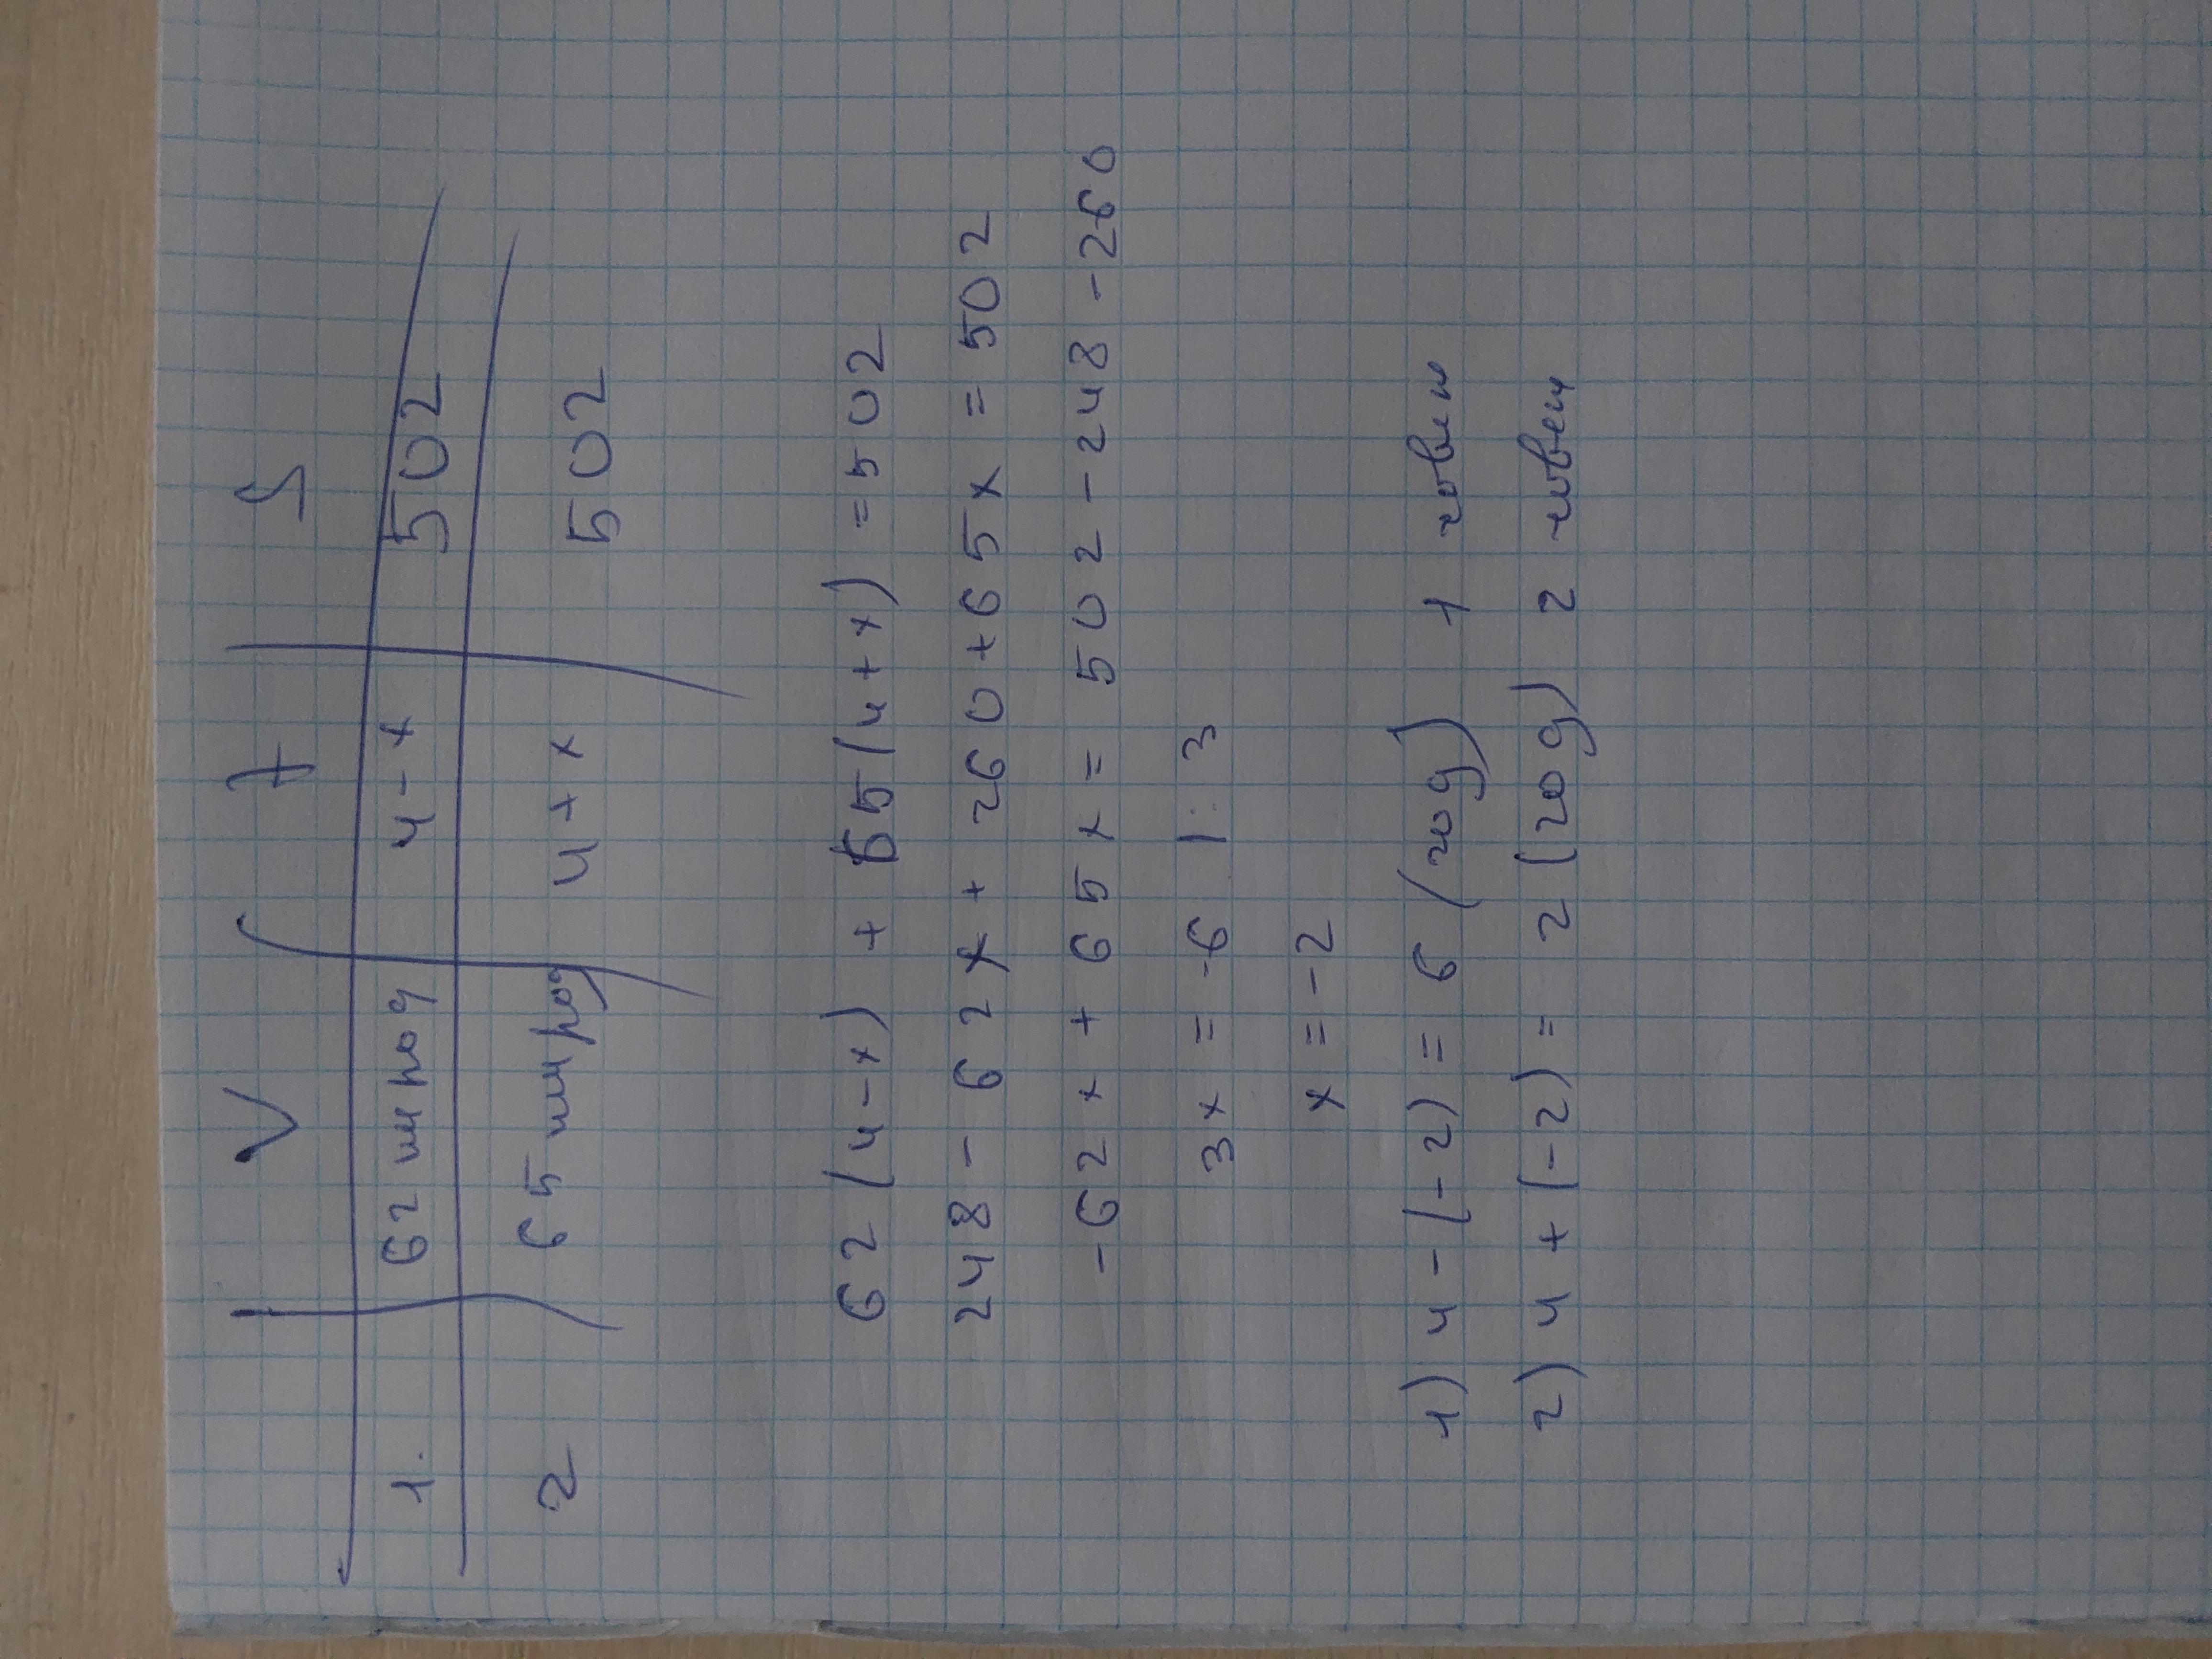 V t S
1. 62 шт/год 4-x 502
2 65 шт/год 4+x 502
62(4-x) + 65(4+x) = 502
248 - 62x + 260 + 65x = 502
-62x + 65x = 502 - 248 - 260
3x = -6 | : 3
x = -2
1) 4 - (-2) = 6 (год) 1 човен
2) 4 + (-2) = 2 (год) 2 човен